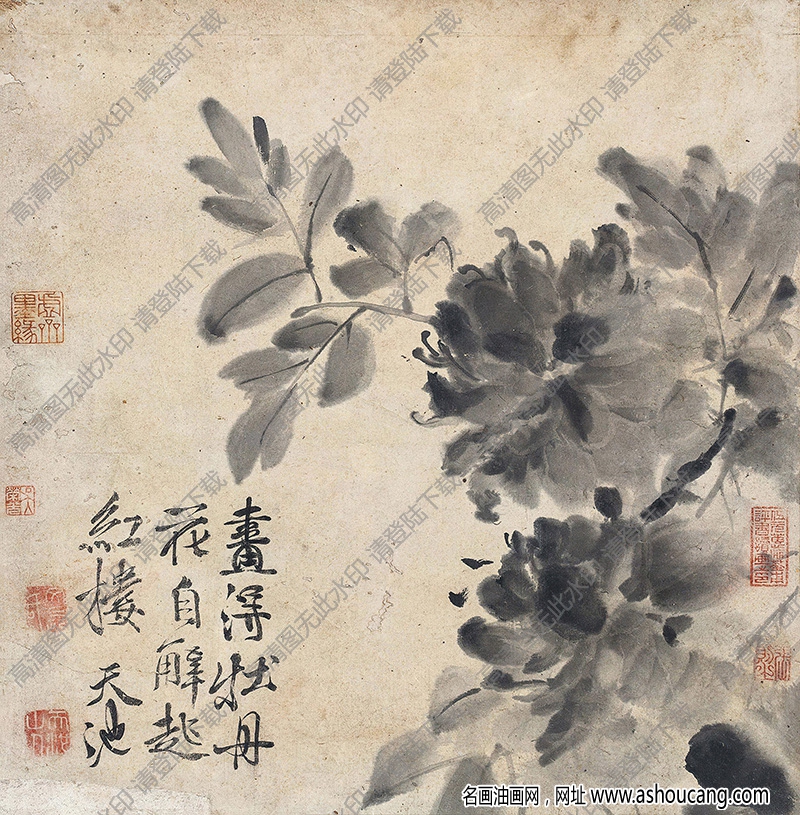 畫得牡丹
花自解起
紅樓 天池
高清图无此水印 请登陆下载
名画油画网，网址 www.ashoucang.com